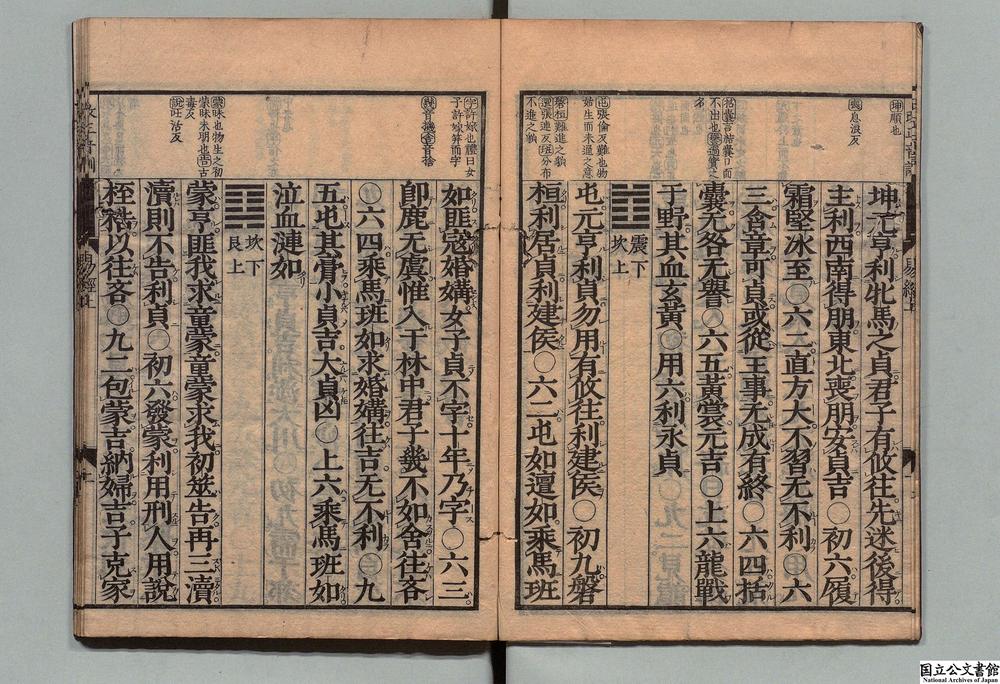 坤順也
坤元亨利牝馬之貞君子有攸往先迷後得
主利西南得朋東北喪朋安貞吉○初六履
霜堅冰至○六二直方大不習无不利○六
三含章可貞或從王事无成有終○六四括
囊无咎无譽○六五黃裳元吉○上六龍戰
于野其血玄黃○用六利永貞
震下
坎上
屯張倫反難也物
始生而未通之意
磐桓難進之貌
邅張連反班分布
不進之貌
屯元亨利貞勿用有攸往利建侯○初九磐
桓利居貞利建侯○六二屯如邅如乘馬班
字許嫁也禮曰女
子許嫁笄而字
如匪寇婚媾女子貞不字十年乃字○六三
卽鹿无虞惟入于林中君子幾不如舍往吝
○六四乘馬班如求婚媾往吉无不利○九
五屯其膏小貞吉大貞凶○上六乘馬班如
泣血漣如
坎下
艮上
蒙昧也物生之初
蒙昧未明也告古
毒反
說吐活反
蒙亨匪我求童蒙童蒙求我初筮告再三瀆
瀆則不告利貞○初六發蒙利用刑人用說
桎梏以往吝○九二包蒙吉納婦吉子克家
易經上
國立公文書館
National Archives of Japan